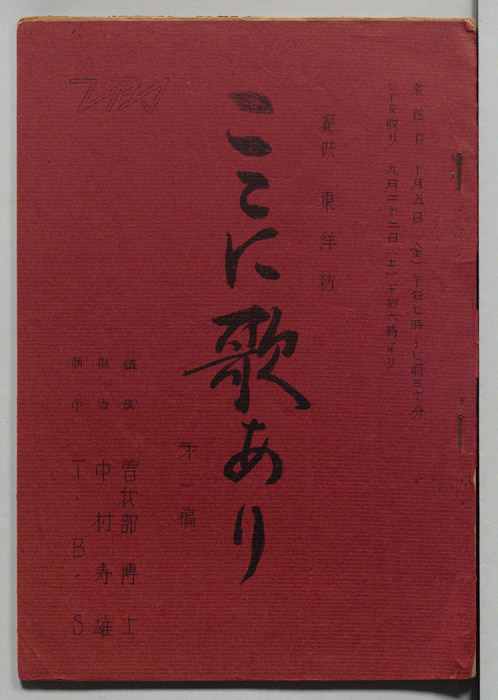 放送日 十月五日(金)午后七時~七時三十分
ビデオ取り 九月二十二日(土)午后六時より
提供 東洋紡
ここに歌あり
才一稿
構成 曽我部博士
担当 中村寿雄
制作 T.B.S